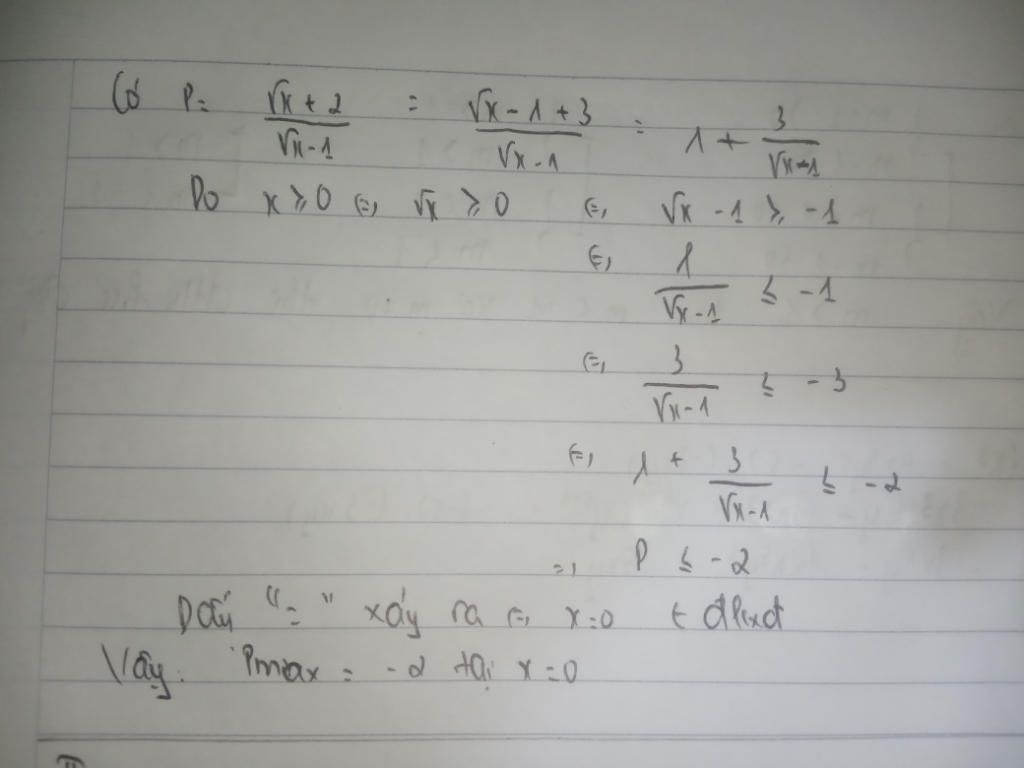 Có P = √x + 2 / √x - 1 = √x - 1 + 3 / √x - 1 = 1 + 3 / √x - 1
Do x ≥ 0 ⇔ √x ≥ 0 ⇔ √x - 1 ≥ -1
⇔ 1 / √x - 1 ≤ -1
⇔ 3 / √x - 1 ≤ -3
⇔ 1 + 3 / √x - 1 ≤ -2
⇒ P ≤ -2
Dấu "=" xảy ra ⇔ x = 0 ∈ đkxđ
Vậy Pmax = -2 tại x = 0